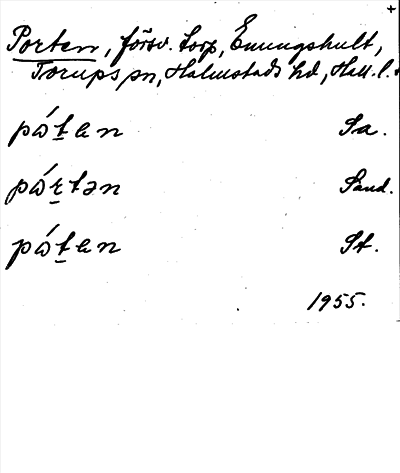 +
Porten, försv. torp, Emungshult,
Torups sn, Halmstads hd, Hall. l.
pó̱tan Sa.
pórtən Sand.
pótan St.
1955.